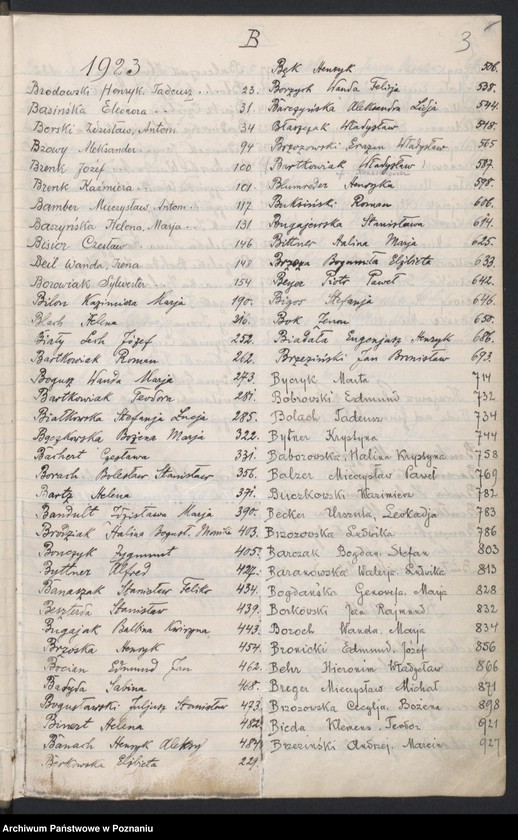 B
3
1923
Brodowski Henryk, Tadeusz .. 23.
Basińska Eleonora .. 31.
Borski Zdzisław, Antoni 34
Brzowy Aleksander 94
Brenk Józef 100
Brenk Kaźmiera .. 101
Bamber Mieczysław, Antoni .. 117
Baczyńska Helena, Marja .. 131
Bisior Czesław 146
Beil Wanda, Irena 148
Borowiak Sylwester 154
Bilon Kazimiera Marja 190.
Blach Helena 216.
Biały Lech Józef 252.
Bartkowiak Roman 262.
Bogusz Wanda Marja 273.
Bartkowiak Teodora 281.
Białkowska Stefanja Lucja 285.
Bączkowska Bożena Marja 322.
Bachert Czesława 331.
Borach Bolesław Stanisław 356.
Bartz Helena 371.
Bandult Zdzisława Marja 390.
Brodziak Halina Bogusł. Monika 403.
Bończyk Zygmunt 405.
Buttner Alfred 427.
Banaszak Stanisław Feliks 434.
Stanisław 439.
Bugajak Balbina Kwiryna 443.
Brzoska Henryk 454.
Bocian Edmund Jan 462.
Sabina 468.
Bogusławski Juljusz Stanisław 473.
Binert Helena 482.
Banach Henryk Aleksy 484.
Borkowska Elżbieta 229.
Bąk Henryk 506.
Borzych Wanda Felicja 538.
Barczyńska Aleksandra Lidja 544.
Błaszczak Władysław 548.
Brzozowski Erazm Władysław 565
(Bartkowiak Władysław) 587.
Blumreder Henryka 598.
Buksiński Roman 606.
Bugajewska Stanisława 614.
Bittner Halina Marja 625.
Brzoza Bogumiła Elżbieta 633.
Beyer Piotr Paweł 642.
Bigos Stefanja 646.
Bok Zenon 650.
Biadała Eugenjusz Henryk 686.
Brzeziński Jan Bronisław 693.
Byczyk Marta 714
Bobrowski Edmund 732
Bolach Tadeusz 734
Bytner Krystyna 744
Baborowska, Halina Krystyna 758
Balzer Mieczysław Paweł 769
Buczkowski Kazimierz 782
Becker Urszula, Leokadja 783
Brzozowska Ludwika 786
Barczak Bogdan, Stefan 803
Baranowska Walerja, Ludwika 813
Bogdańska Genowefa, Marja 828
Borkowski Jan Rajmund 832
Boroch Wanda, Marja 834
Bronicki Edmund, Józef 856
Behr Hieronim Władysław 866
Breger Mieczysław Michał 871
Brzozowska Cecylja Bożena 898
Bieda Klemens, Teodor 921
Brzeziński Andrzej, Marcin 927
Archiwum Państwowe w Poznaniu